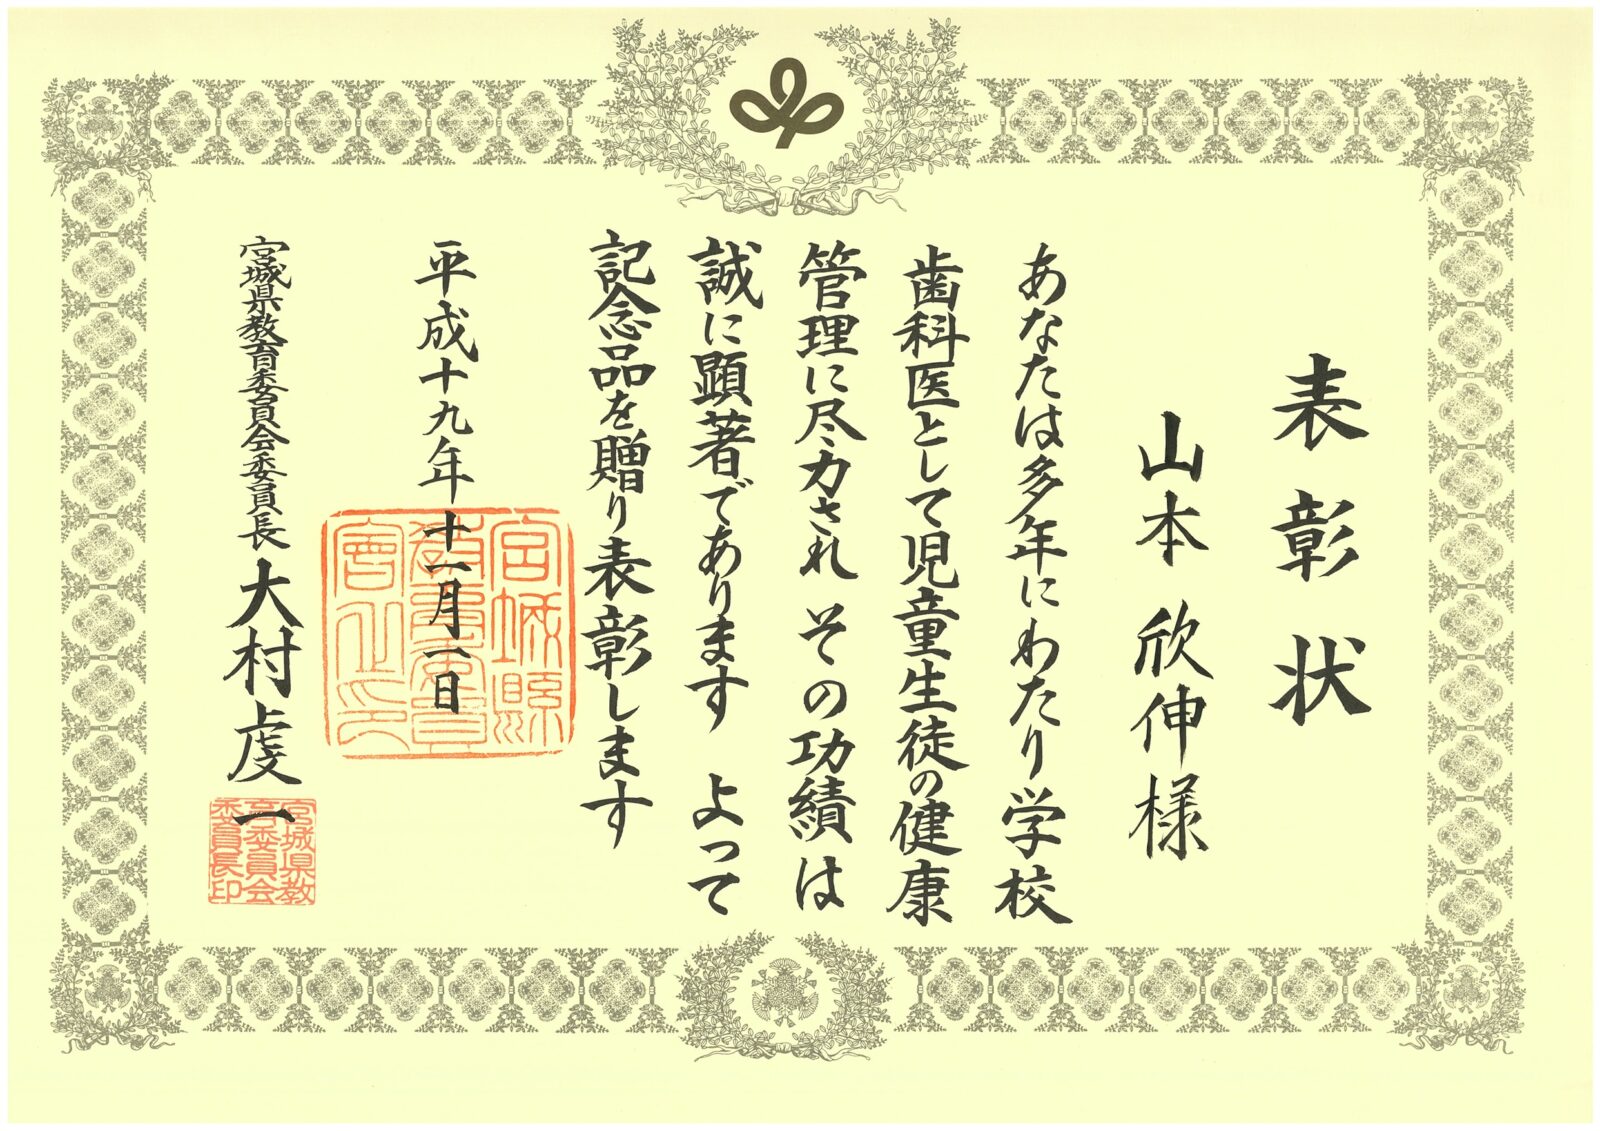 表彰状
山本欣伸様
あなたは多年にわたり学校
歯科医として児童生徒の健康
管理に尽力され その功績は
誠に顕著であります よって
記念品を贈り表彰します
平成十九年十一月一日
宮城県教育委員会委員長 大村虔一
宮城縣教育委員會之印
宮城県教育委員会委員長印